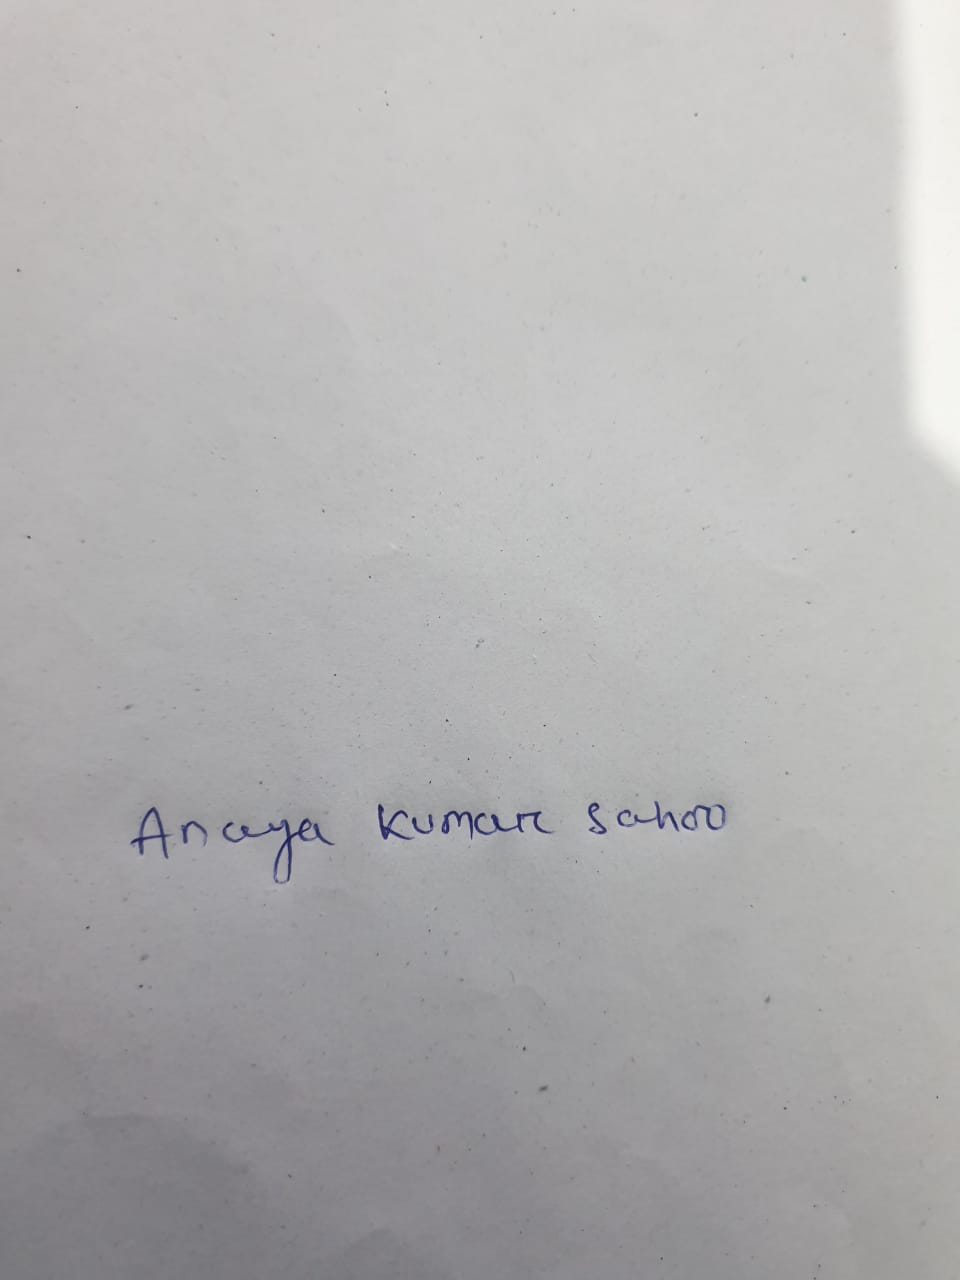 Anaya Kumar Sahoo